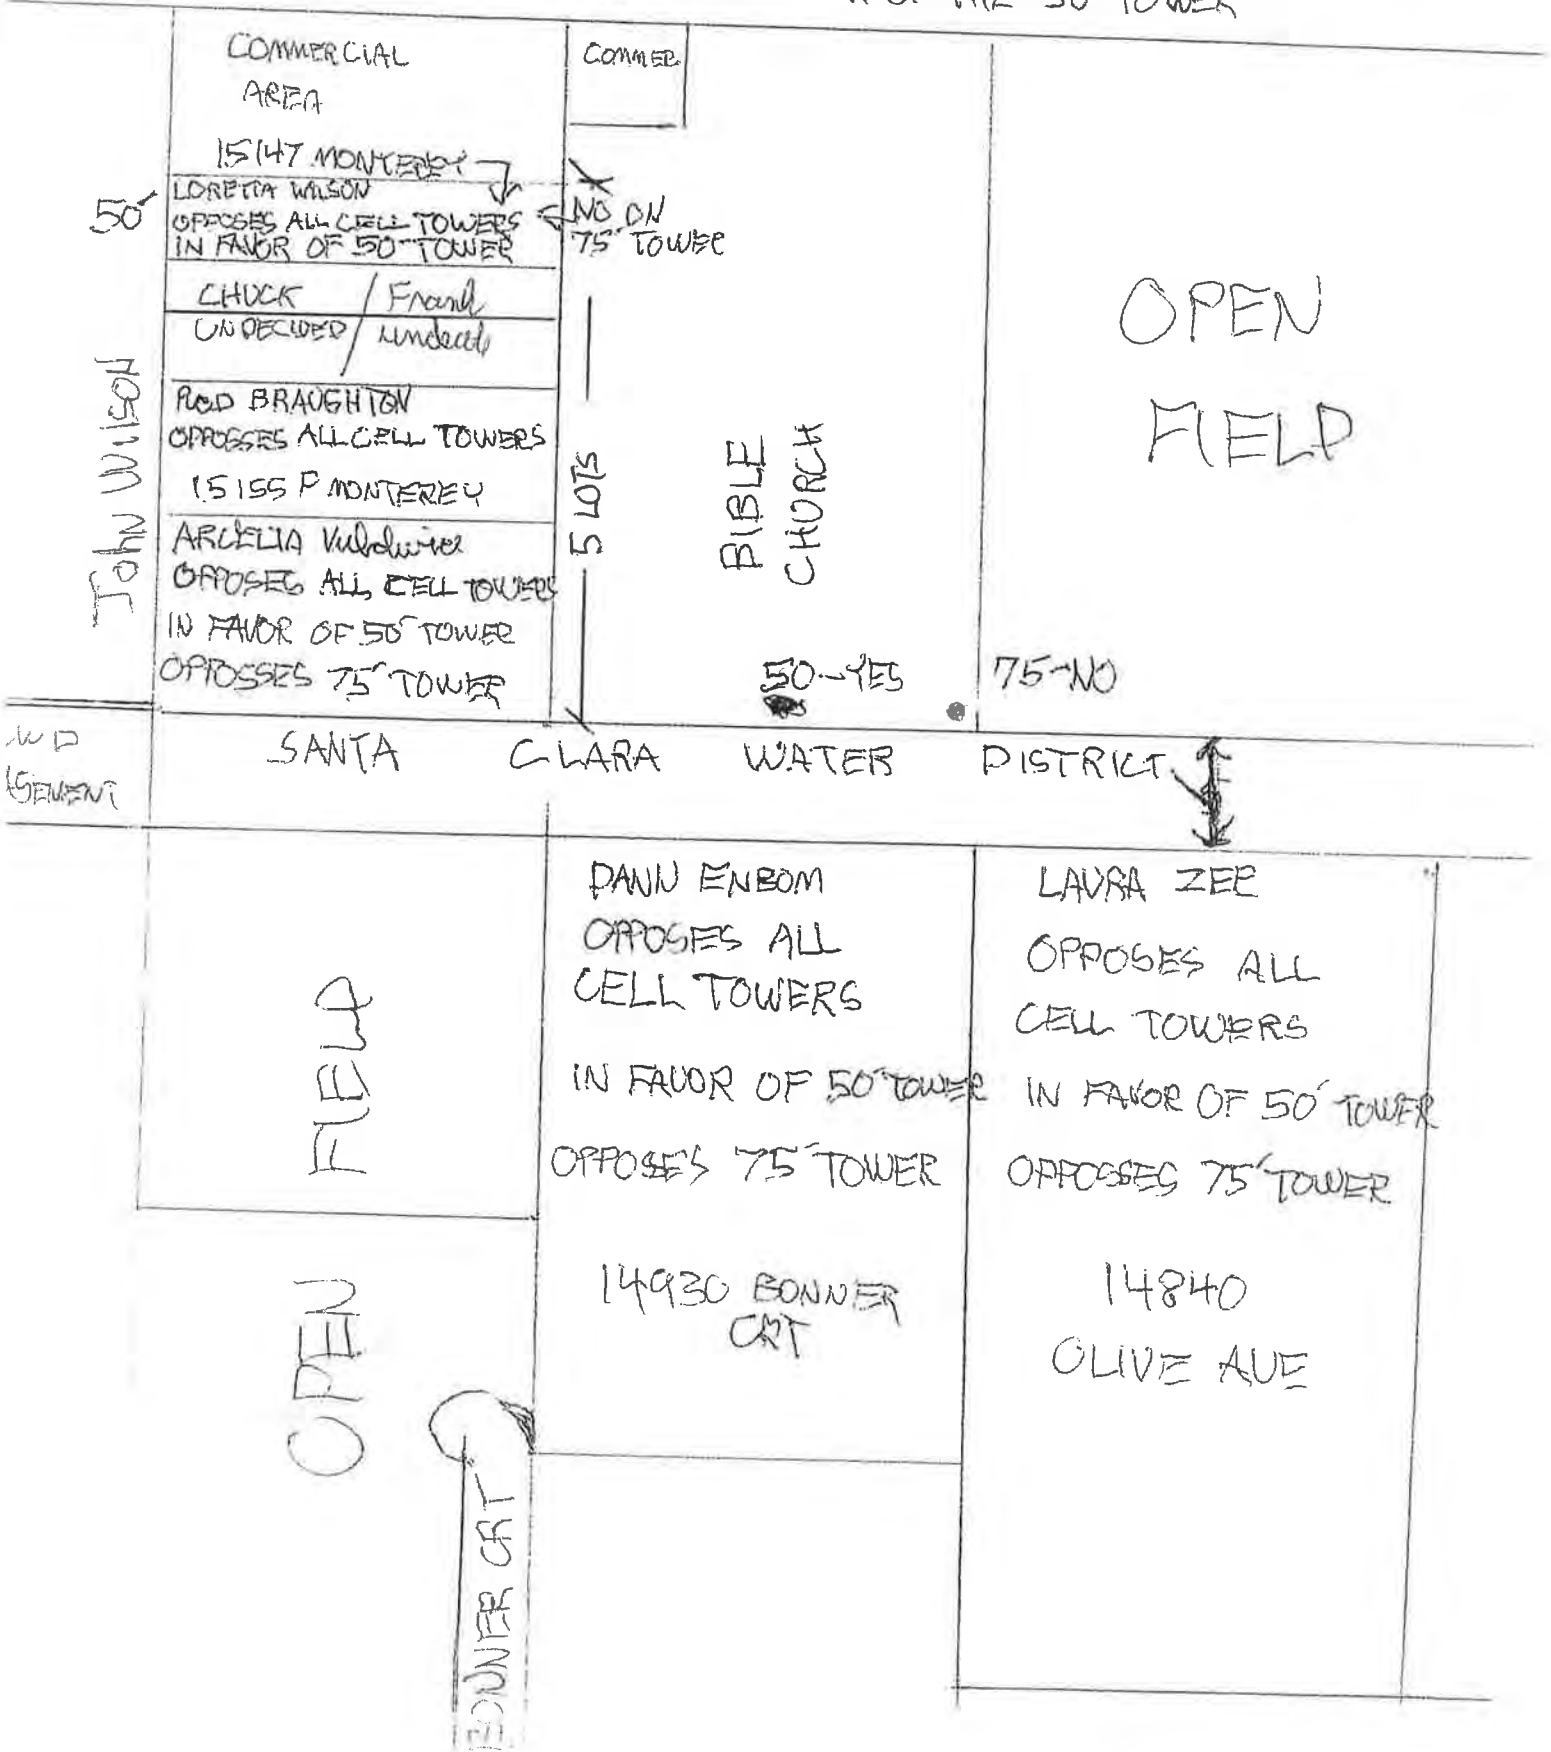 THE 50' TOWER
COMMERCIAL
AREA
COMMER
15147 MONTEREY
LORETTA WILSON
OPPOSES ALL CELL TOWERS
IN FAVOR OF 50' TOWER
50'
NO ON
75' TOWER
CHUCK / Frank
UNDECIDED /
ROD BRAUGHTON
OPPOSSES ALL CELL TOWERS
15155 P MONTEREY
ARCELIA
OPPOSES ALL CELL TOWERS
IN FAVOR OF 50' TOWER
OPPOSSES 75' TOWER
John Wilson
5 LOTS
BIBLE
CHURCH
OPEN
FIELD
50-YES
75-NO
WD
SEMENT
SANTA CLARA WATER DISTRICT
DANN ENBOM
OPPOSES ALL
CELL TOWERS
IN FAVOR OF 50' TOWER
OPPOSES 75' TOWER
14930 BONNER
CRT
LAURA ZEE
OPPOSES ALL
CELL TOWERS
IN FAVOR OF 50' TOWER
OPPOSSES 75' TOWER
14840
OLIVE AVE
OPEN FIELD
BONNER CRT